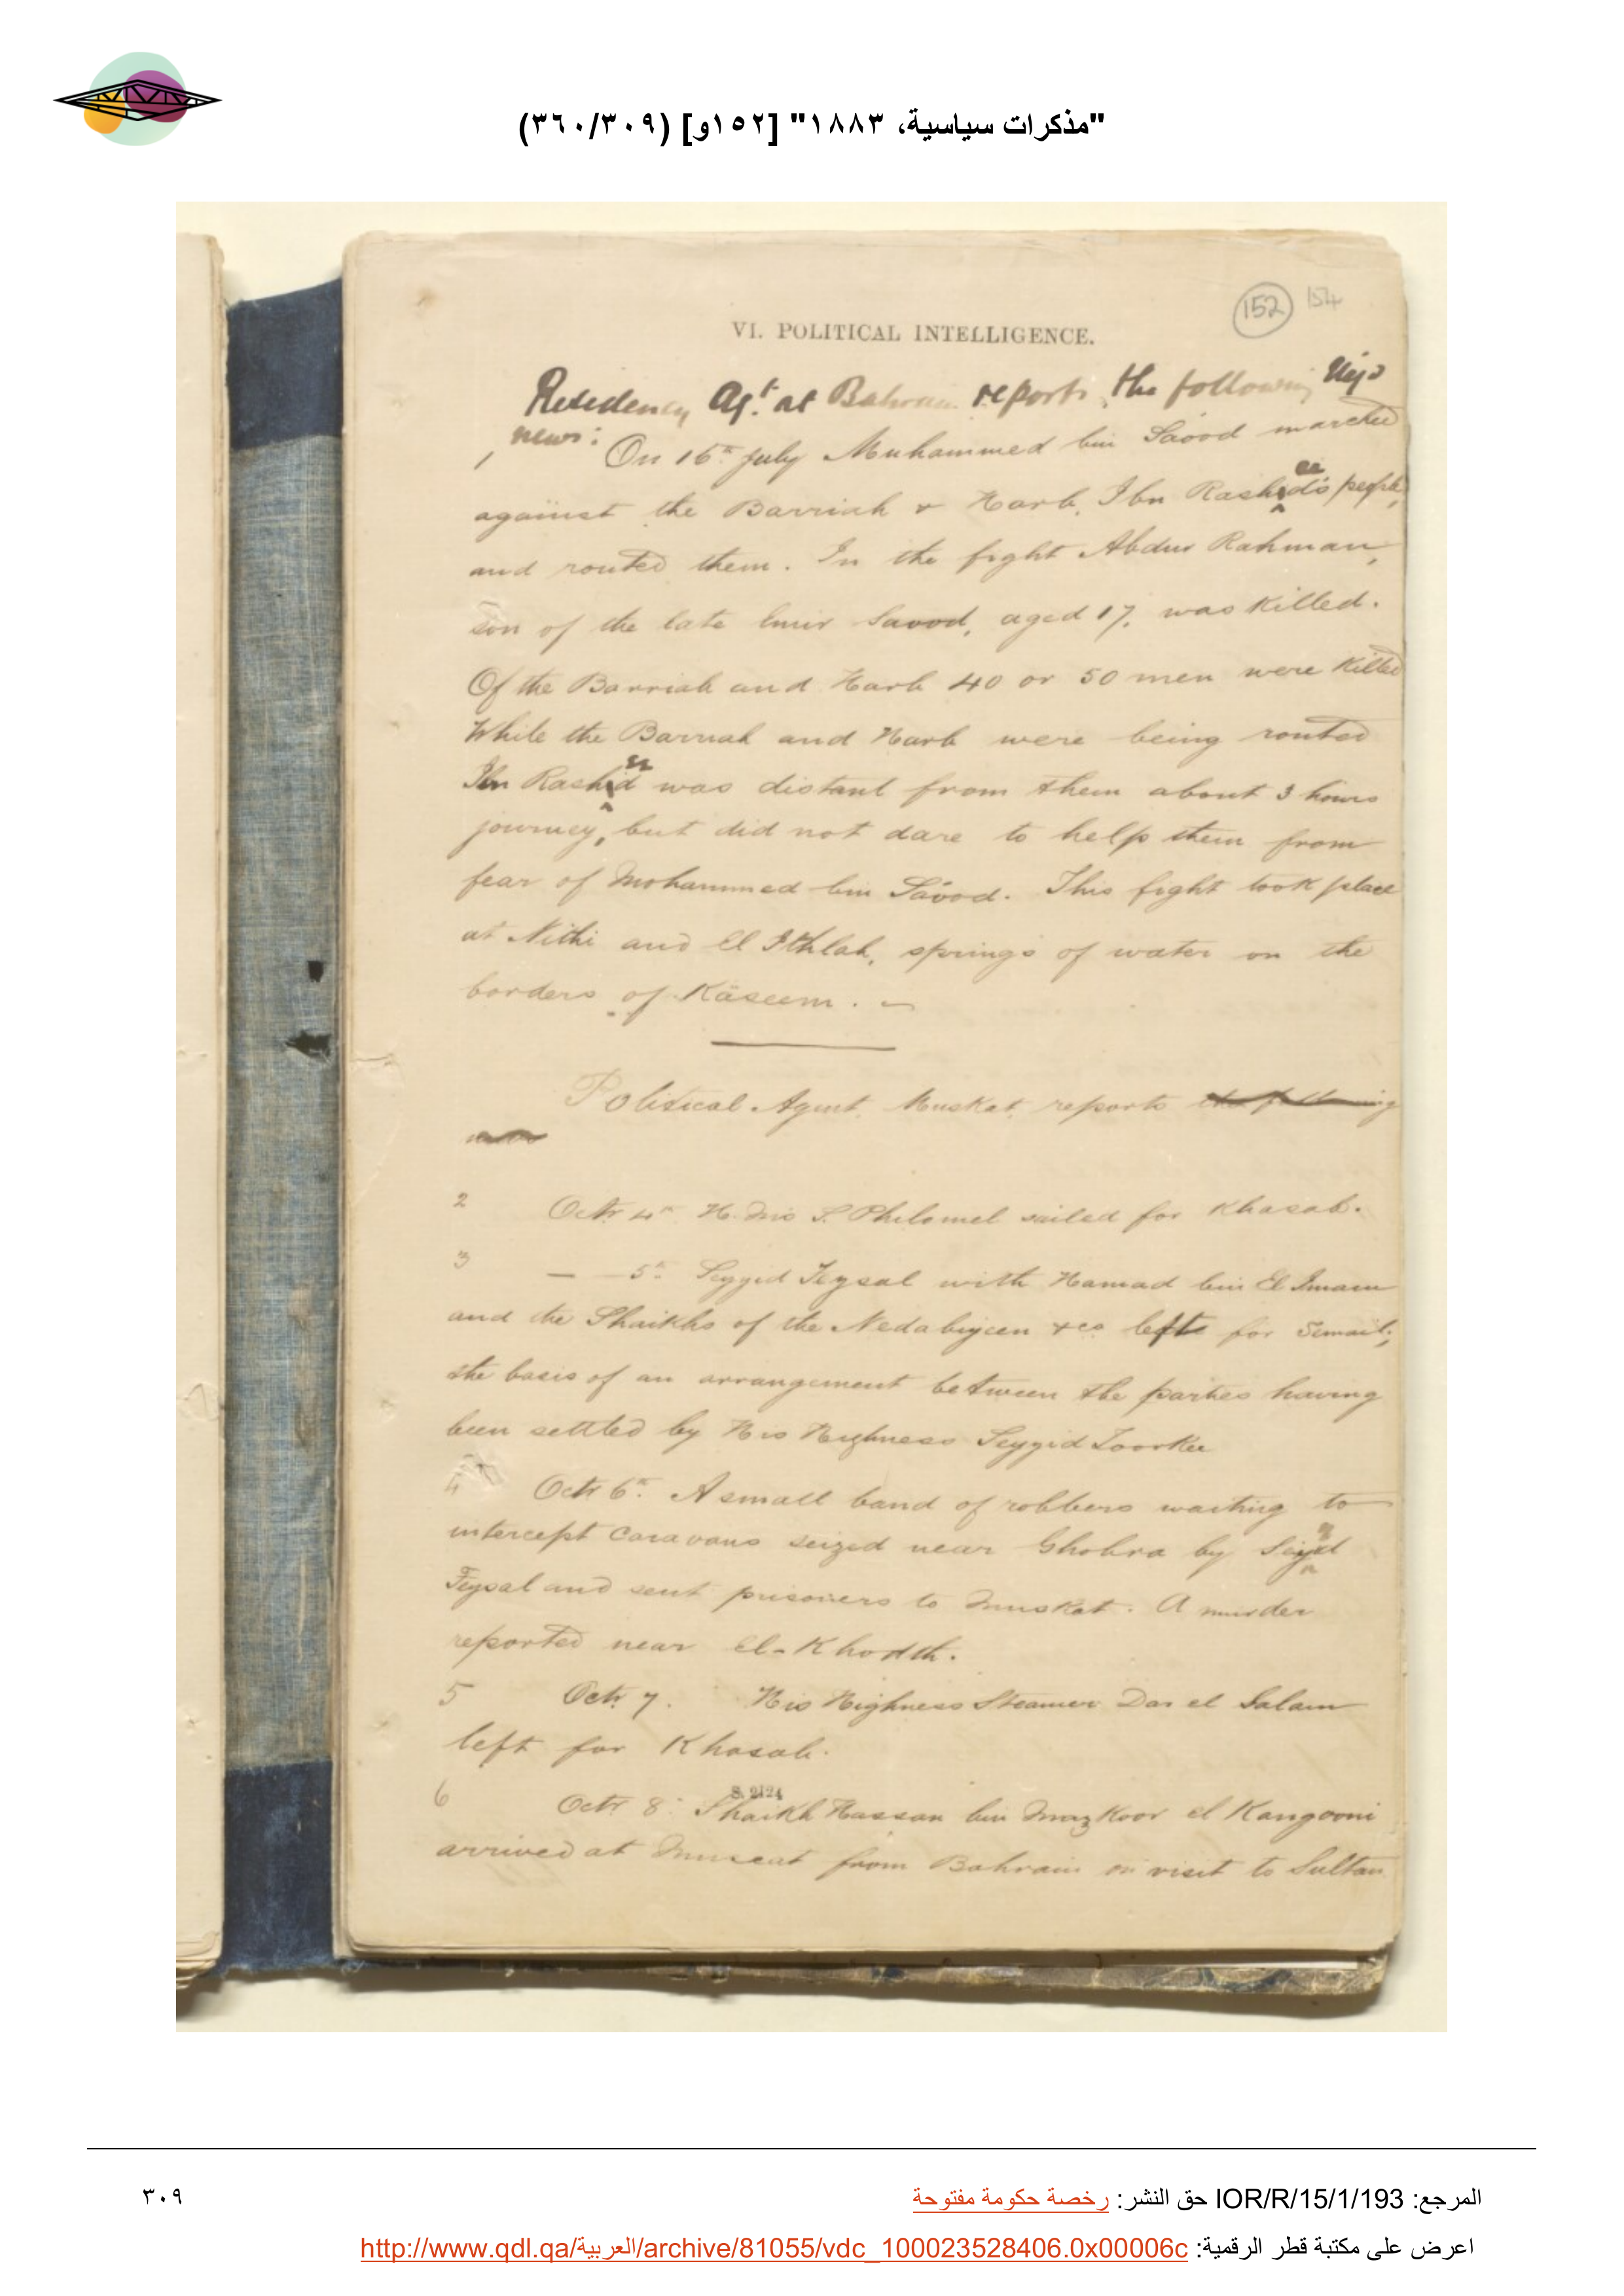 "مذكرات سياسية، ١٨٨٣" [١٥٢و] (٣٦٠/٣٠٩)
152 154
VI. POLITICAL INTELLIGENCE.
Residency Agt. at Bahrain reports the following Nejd
news:
1 On 16th July Muhammed bin Saood marched
against the Barriah & Harb, Ibn Rasheed's people,
and routed them. In the fight Abdur Rahman,
son of the late Emir Saood, aged 17, was killed.
Of the Barriah and Harb 40 or 50 men were killed
While the Barriah and Harb were being routed
Ibn Rasheed was distant from them about 3 hours
journey, but did not dare to help them from
fear of Mohammed bin Saood. This fight took place
at Nithi and El Ithlah, springs of water on the
borders of Kaseem. —
Political Agent Muskat reports the following
news
2 Octr. 4th H.M's S. Philomel sailed for Khasab.
3 — 5th Seyyid Feysal with Hamad bin El Imam
and the Shaikhs of the Nedabiyeen &ca left for Semail;
the basis of an arrangement between the parties having
been settled by His Highness Seyyid Toorkee
4 Octr 6th. A small band of robbers waiting to
intercept caravans seized near Ghobra by Seyyid
Feysal and sent prisoners to Muskat. A murder
reported near El-Khodth.
5 Octr. 7. His Highness Steamer Dar el Salam
left for Khasab.
6 Octr 8th Shaikh Hassan bin Mazkoor el Kangooni
S. 2124
arrived at Muscat from Bahrain on visit to Sultan
المرجع: IOR/R/15/1/193 حق النشر: رخصة حكومة مفتوحة
٣٠٩
اعرض على مكتبة قطر الرقمية: http://www.qdl.qa/العربية/archive/81055/vdc_100023528406.0x00006c